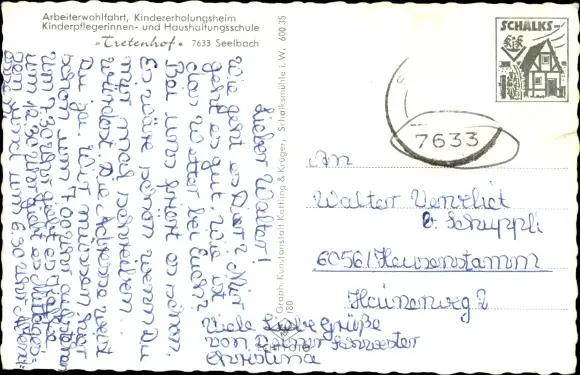 Arbeiterwohlfahrt, Kindererholungsheim
Kinderpflegerinnen- und Haushaltungsschule
"Tretenhof" 7633 Seelbach
Graph. Kunstanstalt Kettling & Krüger, Schalksmühle i. W. 600 35
180
SCHALKS-
KÜK
7633
Lieber Walter!
Wie geht es Dir? Mir
geht es gut. Wie ist
das Wetter bei Euch?
Bei uns friert es schon.
Es wäre schön wenn Du
mir mal schreiben
würdest. Die Adresse hast
Du ja. Wir müssen hier
schon um 7.00 Uhr aufstehen
um 7.30 Uhr gibt es Kaffee
um 12.30 Uhr gibt es Mittages-
sen und um 6.30 Uhr
Viele liebe Grüße
von Deiner Schwester
An
Walter
b. Schuppli
6056 / Heusenstamm
Hainerweg 2